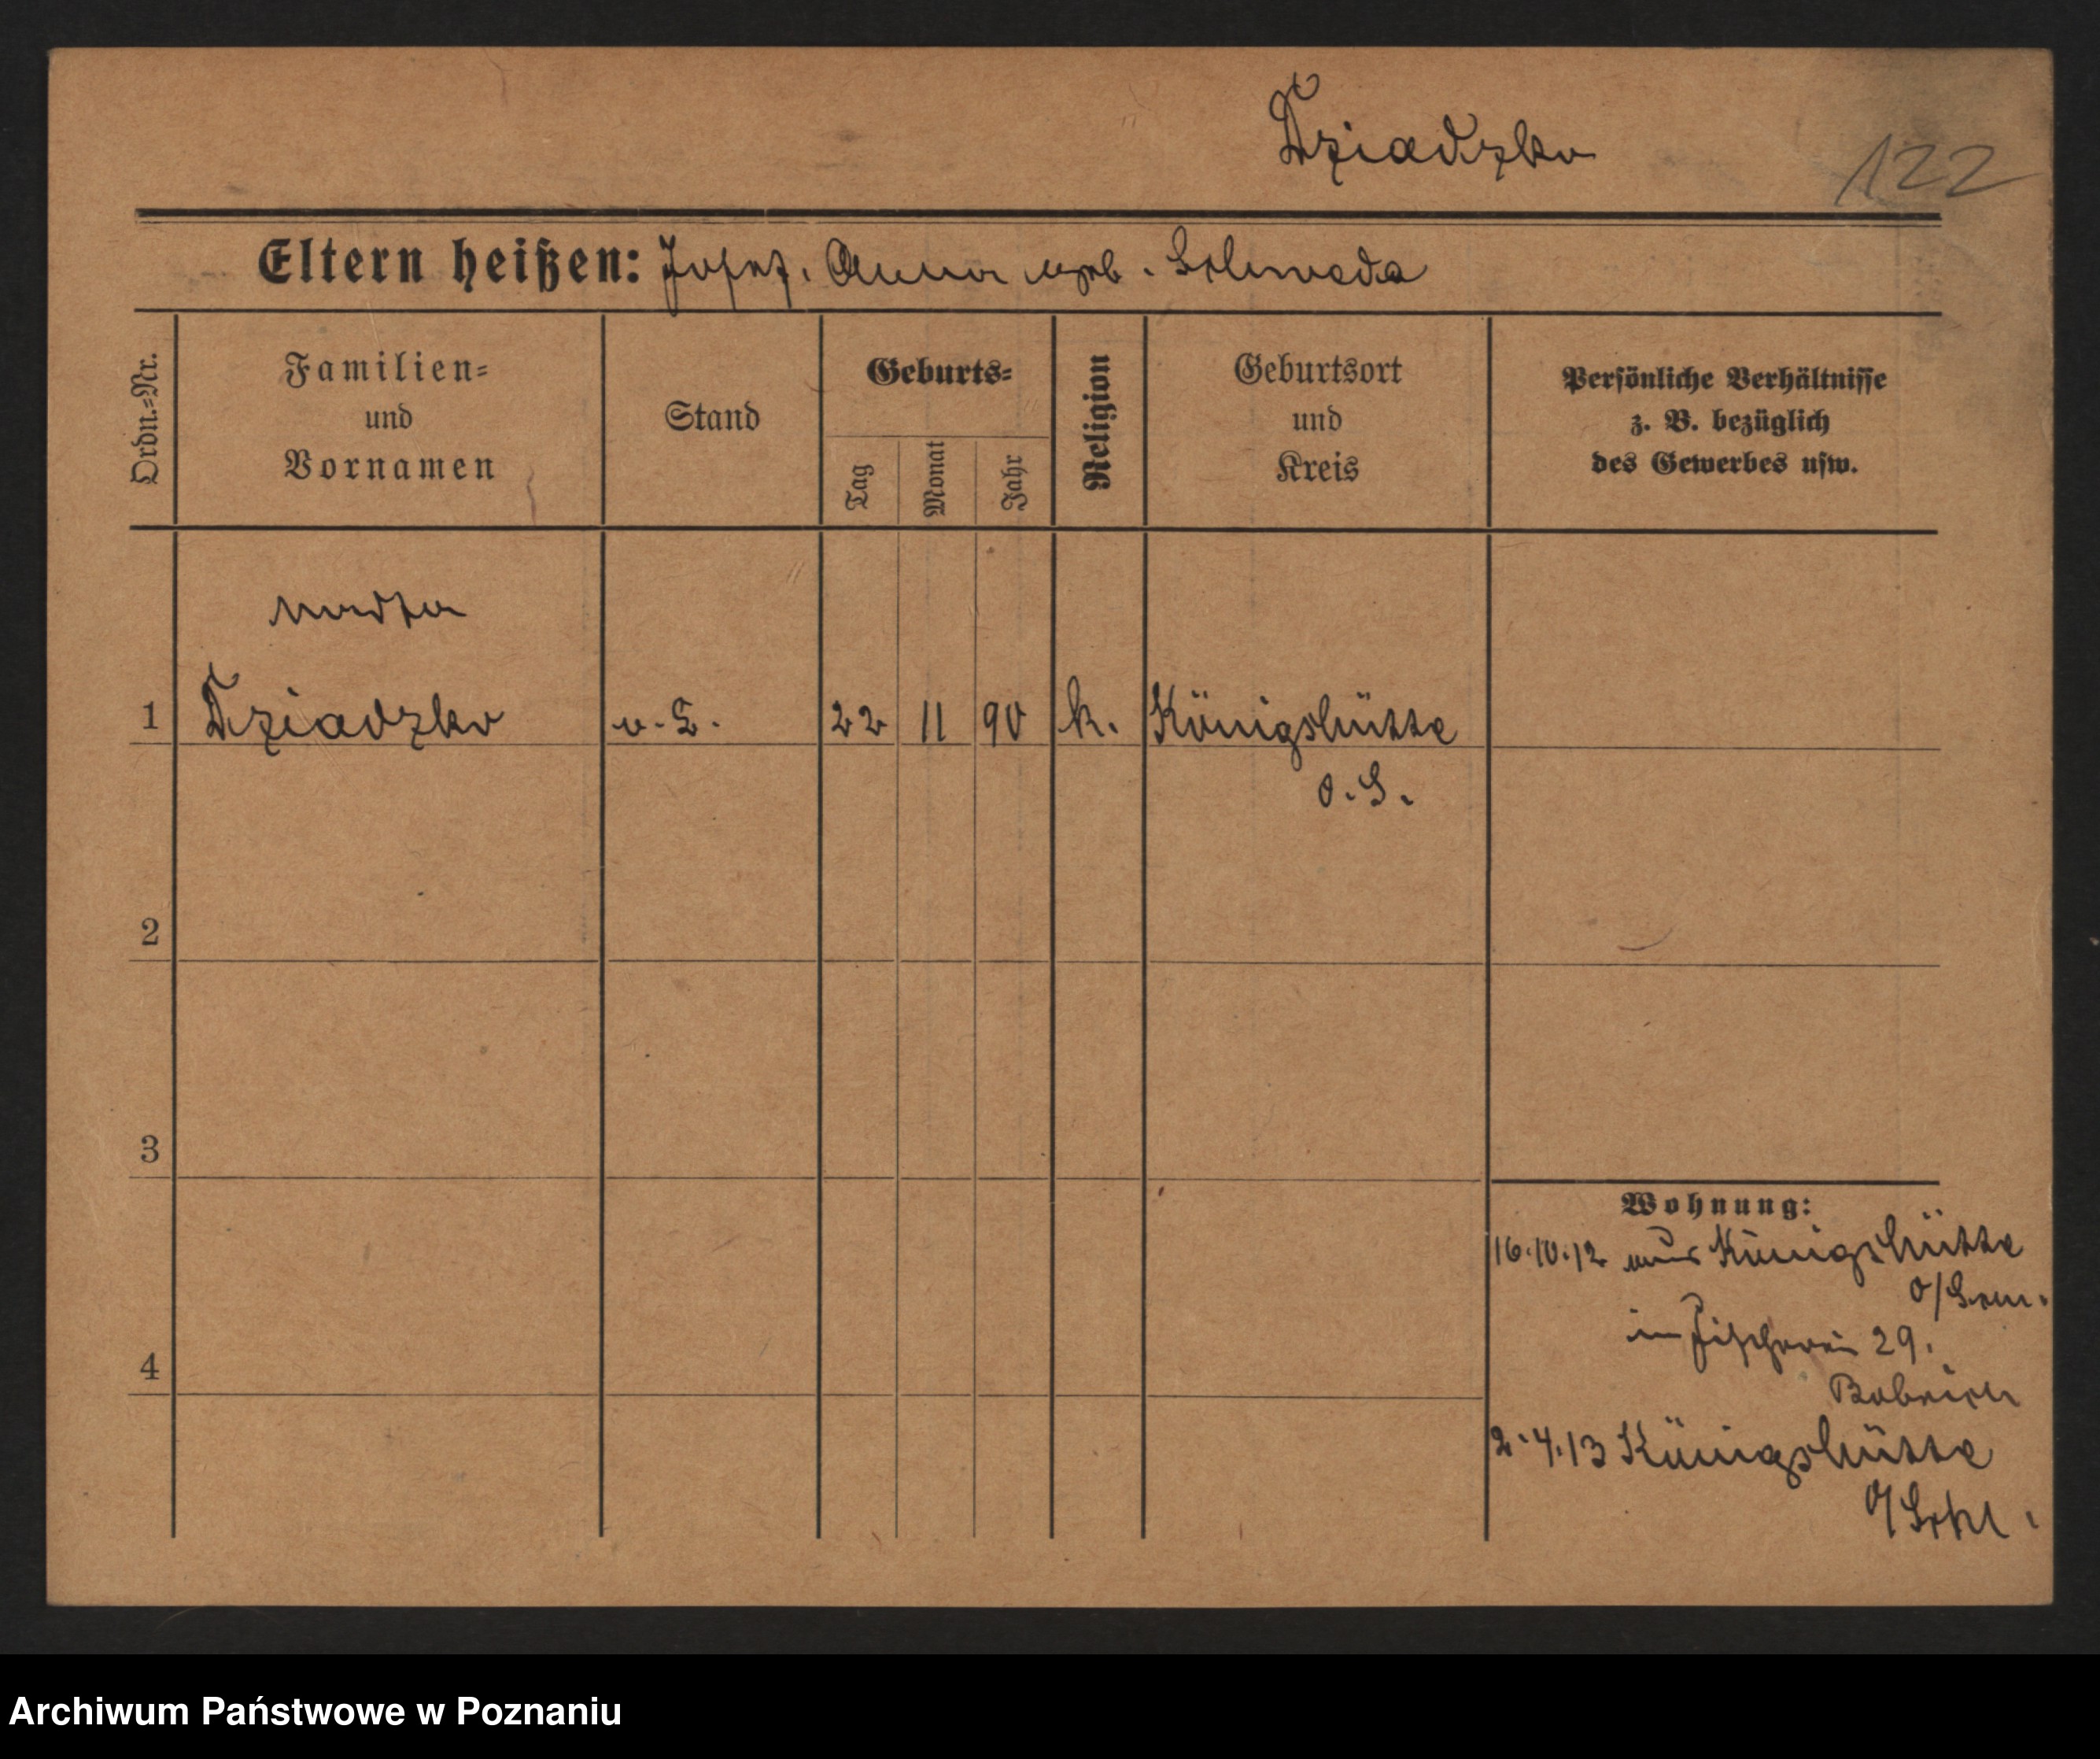 Dziadzko
122
Eltern heißen: Josef. Anna geb. Schweda
Ordn.=Nr.
Familien=
und
Vornamen
Stand
Geburts=
Tag
Monat
Jahr
Religion
Geburtsort
und
Kreis
Persönliche Verhältnisse
z. B. bezüglich
des Gewerbes usw.
1 Dziadzko 22 11 90 k. Königshütte
O.S.
2
3
4
Wohnung:
16.10.12 aus Königshütte
im Fischerei 29.
2.4.13 Königshütte
O/Schl.
Archiwum Państwowe w Poznaniu